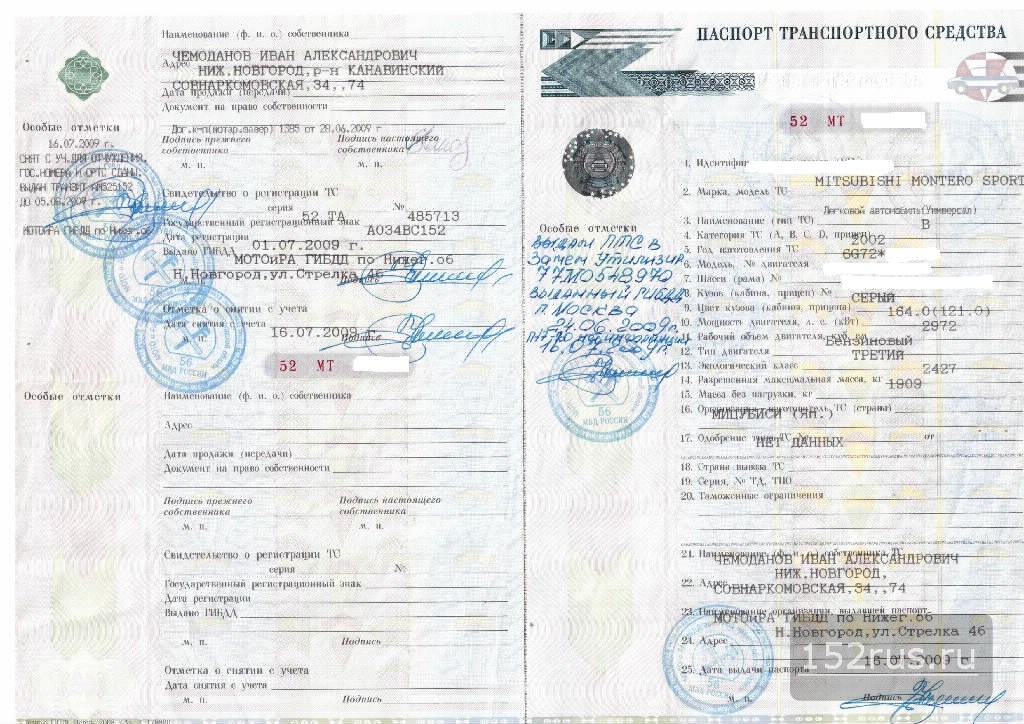 Наименование (ф. и. о.) собственника
ЧЕМОДАНОВ ИВАН АЛЕКСАНДРОВИЧ
Адрес
НИЖ.НОВГОРОД,р-н КАНАВИНСКИЙ
СОВНАРКОМОВСКАЯ,34,,74
Дата продажи (передачи)
Документ на право собственности
Дог.к-п(нотар.завер) 1385 от 28.06.2009 г
Подпись прежнего собственника
Подпись настоящего собственника
м. п.
м. п.
Особые отметки
16.07.2009 г.
СНЯТ С УЧ.ДЛЯ ОТЧУЖДЕНИЯ.
ГОС.НОМЕРА И СРТС СДАНЫ.
ВЫДАН ТРАНЗИТ
МОТОИРА ГИБДД по Нижег.об
Свидетельство о регистрации ТС
серия 52 ТА № 485713
Государственный регистрационный знак А034ВС152
Дата регистрации 01.07.2009 г.
Выдано ГИБДД МОТОИРА ГИБДД по Нижег.об
Н.Новгород,ул.Стрелка 46
м. п.
Подпись
Отметка о снятии с учета
Дата снятия с учета 16.07.2009 г.
м. п.
Подпись
56
МВД РОССИИ
52 МТ
Особые отметки
Наименование (ф. и. о.) собственника
Адрес
Дата продажи (передачи)
Документ на право собственности
Подпись прежнего собственника
Подпись настоящего собственника
м. п.
м. п.
Свидетельство о регистрации ТС
серия №
Государственный регистрационный знак
Дата регистрации
Выдано ГИБДД
м. п.
Подпись
Отметка о снятии с учета
Дата снятия с учета
м. п.
Подпись
ПАСПОРТ ТРАНСПОРТНОГО СРЕДСТВА
52 МТ
Особые отметки
Выдан ПТС в
Замен Утилизир
77МО548970
Выданный ГИБДД
г. Москва
24.06.2009г.
56
МВД РОССИИ
1. Идентифик
2. Марка, модель ТС
MITSUBISHI MONTERO SPORT
3. Наименование (тип ТС) Легковой автомобиль(Универсал)
4. Категория ТС (А, В, С, D, прицеп) В
5. Год изготовления ТС 2002
6. Модель, № двигателя 6G72*
7. Шасси (рама) №
8. Кузов (кабина, прицеп) №
9. Цвет кузова (кабины, прицепа) СЕРЫЙ
10. Мощность двигателя, л. с. (кВт) 164.0(121.0)
11. Рабочий объем двигателя, 2972
12. Тип двигателя Бензиновый
13. Экологический класс ТРЕТИЙ
14. Разрешенная максимальная масса, кг 2427
15. Масса без нагрузки, кг 1909
16. Организация-изготовитель ТС (страна)
МИЦУБИСИ (ЯП.)
17. Одобрение типа ТС № от
НЕТ ДАННЫХ
18. Страна вывоза ТС
19. Серия, № ТД, ТПО
20. Таможенные ограничения
21. Наименование (ф. и. о.) собственника ТС
ЧЕМОДАНОВ ИВАН АЛЕКСАНДРОВИЧ
22. Адрес НИЖ.НОВГОРОД,
СОВНАРКОМОВСКАЯ,34,,74
23. Наименование организации, выдавшей паспорт
МОТОИРА ГИБДД по Нижег.об
24. Адрес Н.Новгород,ул.Стрелка 46
25. Дата выдачи паспорта 16.07.2009 г.
м. п.
Подпись
152rus.ru